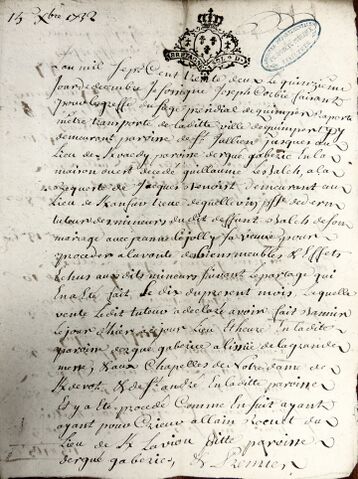 15 Xbre 1732
BRETAGNE
L'an mil Sept Cent trente deux Le quinzieme
Jour de decembre Je Joseph Corbie faisant
pour Le greffe du Siege presidial de quimper
metre transporte de laditte ville de quimper
demeurant paroisse de St Jullien jusques au
Lieu de paroisse dergue gaberic En la
maison ou est decede guillaume Le Balch, a la
requeste de Jacques benoist demeurant au
Lieu de treve de
tuteur des mineurs dudit deffunt Balch de son
mariage avec jeanne Le jolly Sa veuve pour
proceder a la vente des biens meubles & Effets
Echus aux dits mineurs Suivant Le partage qui
En a Ete fait Le dix du present mois, Laquelle
vente Le dit tuteur a declare avoir fait bannir
Le jour dhier a ce jour Lieu & heure En laditte
paroisse dergue gaberic a Lissue de la grande
messe, & aux Chapelles de Notre dame de
Kdevot, & de St andré En laditte paroisse
Et y a Ete procedé Comme En Suit ayant
ayant pour Crieur allain du
Lieu de ditte paroisse
dergue gaberic, & Premier